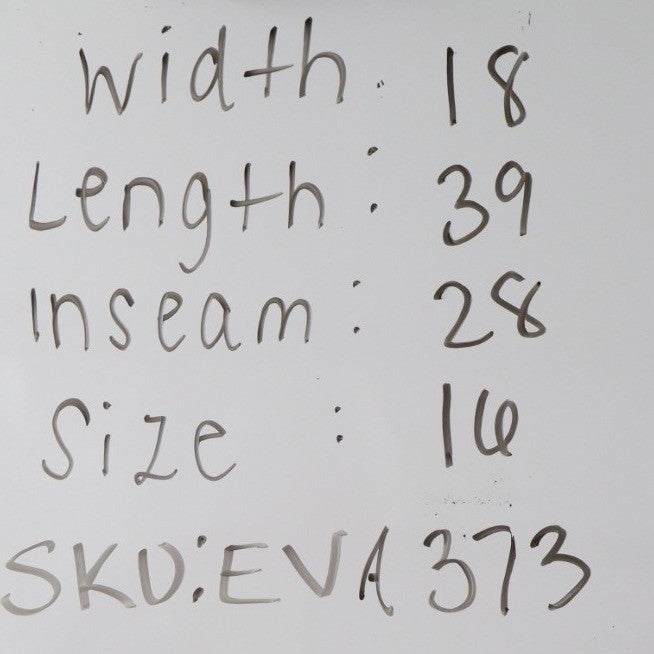 Width: 18
Length: 39
Inseam: 28
Size: 16
SKU: EVA373